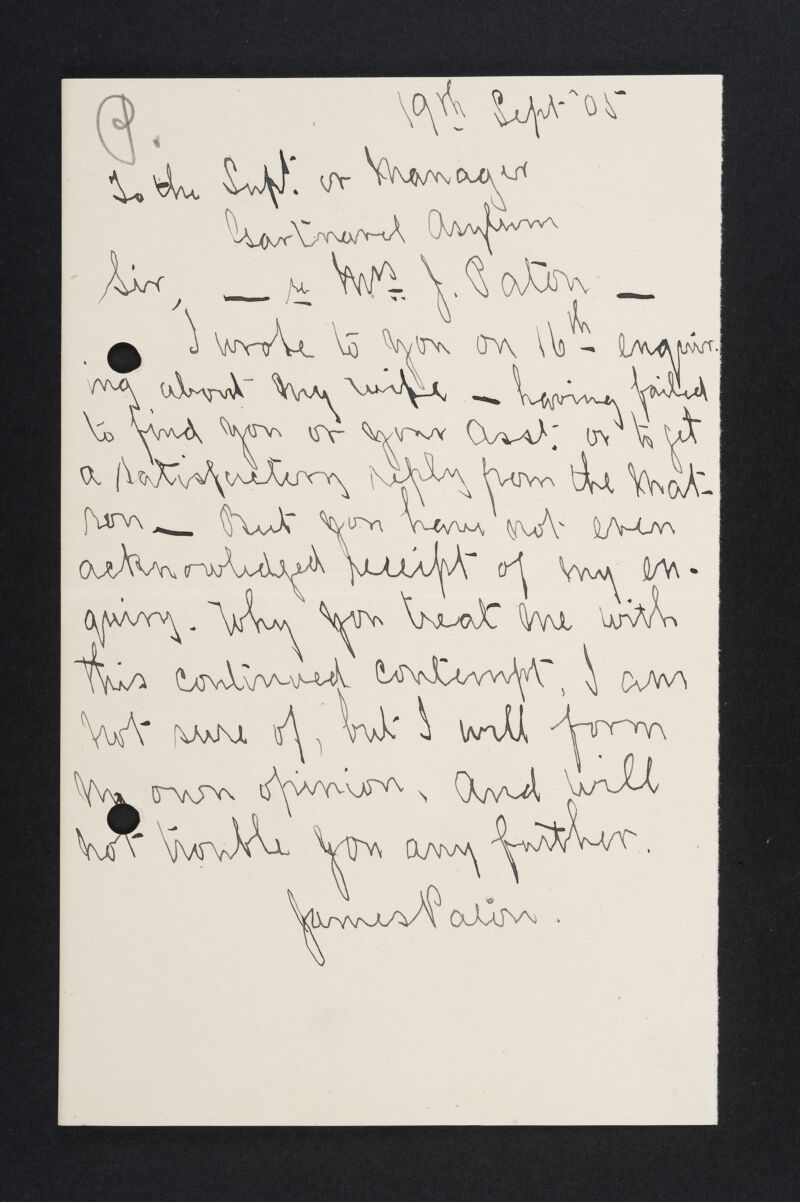 P.
19th Sept '05
To the Supt. or Manager
Gartnavel Asylum
Sir, — re Mrs J. Paton —
I wrote to you on 16th enquir-
ing about my wife — having failed
to find you or your Asst. or to get
a satisfactory reply from the Mat-
ron — But you have not even
acknowledged receipt of my en-
quiry. Why you treat me with
this continued contempt, I am
not sure of, but I will form
my own opinion, and will
not trouble you any further.
James Paton.